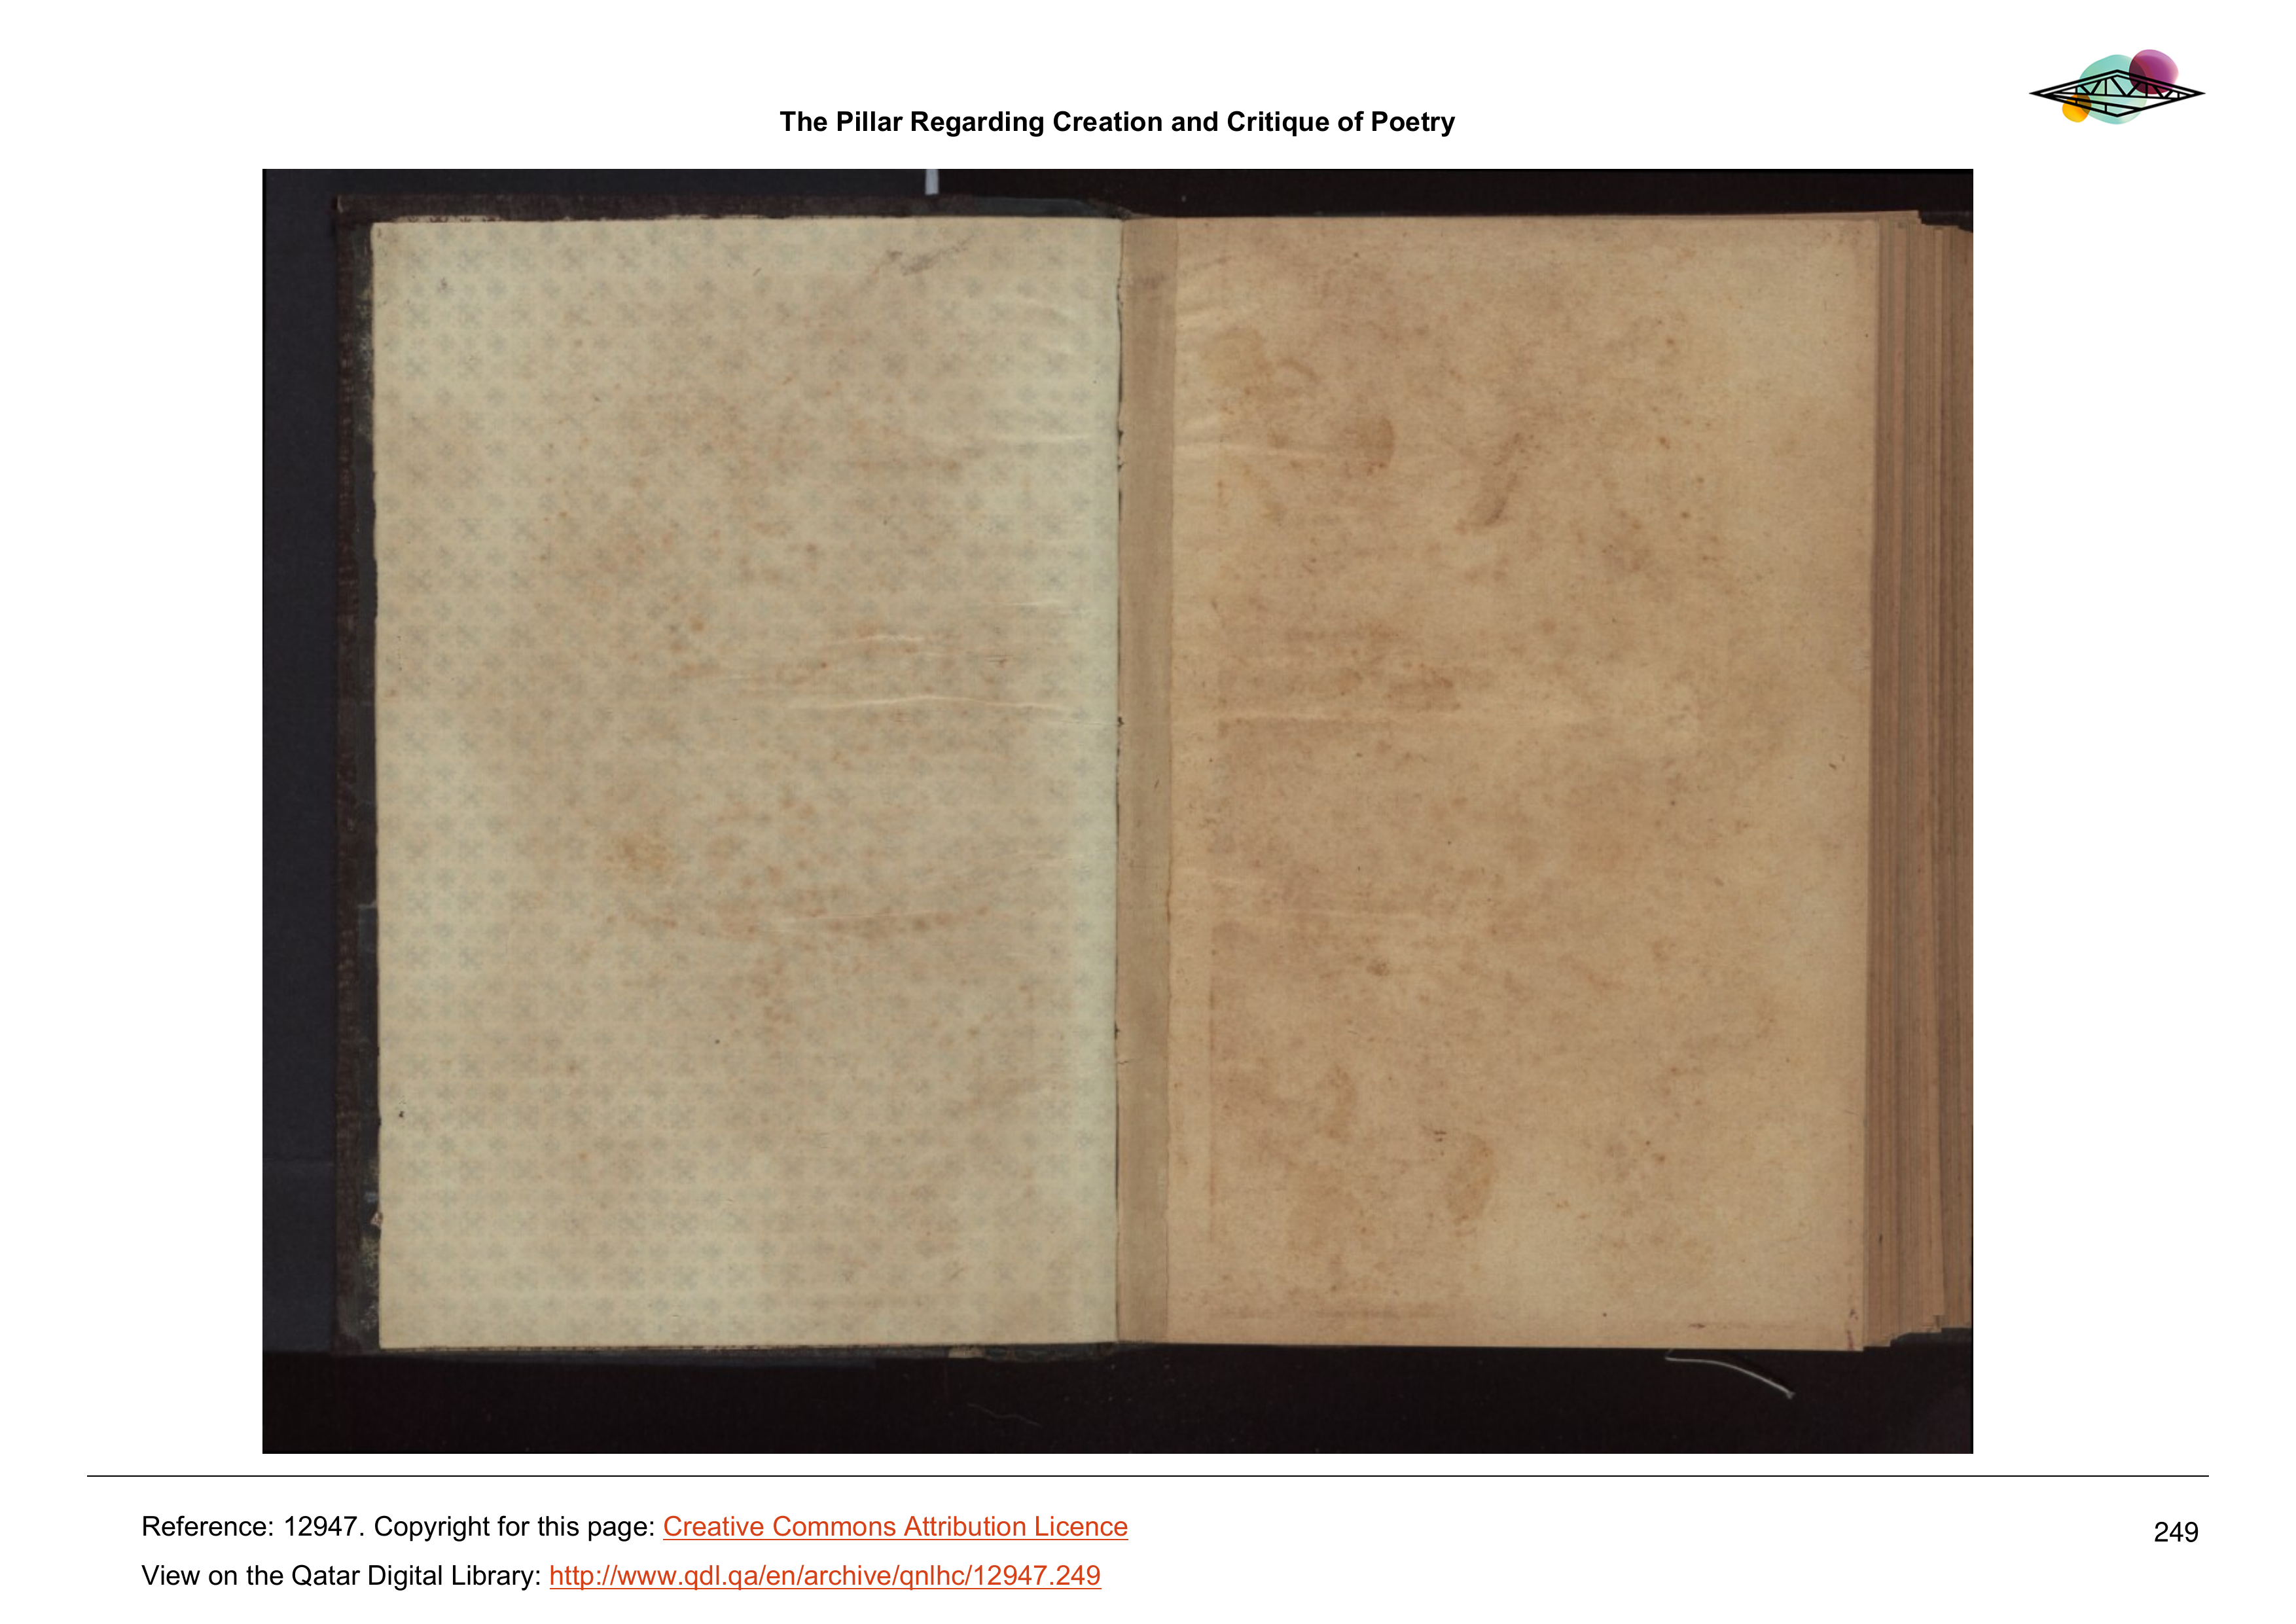 The Pillar Regarding Creation and Critique of Poetry
Reference: 12947. Copyright for this page: Creative Commons Attribution Licence
249
View on the Qatar Digital Library: http://www.qdl.qa/en/archive/qnlhc/12947.249